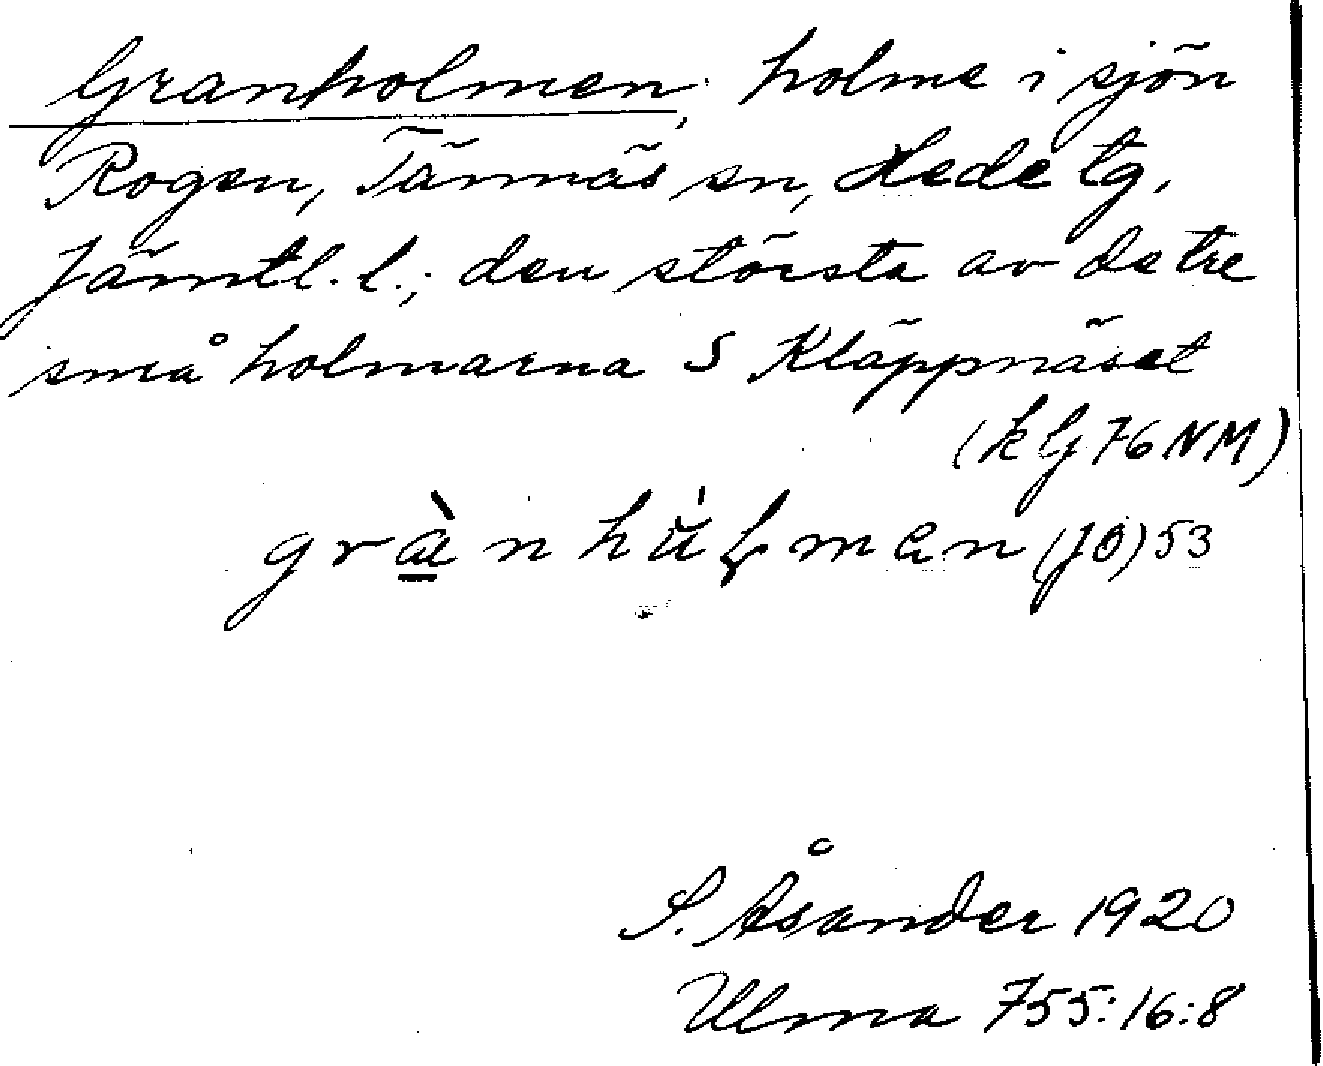 Granholmen, holme i sjön
Rogen, Tännäs sn, Hede tg,
Jämtl. l.; den största av de tre
små holmarna S Kläppnäset
(kG 76 NM)
(JÖ) 53
S. Åsander 1920
Ulma 755:16:8